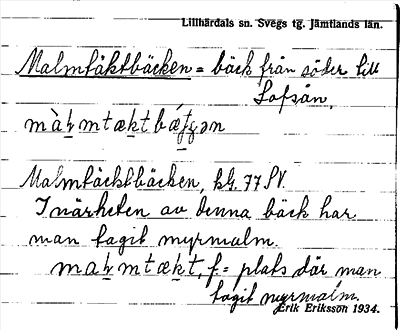 Lillhärdals sn. Svegs tg. Jämtlands län.
Malmtäktbäcken = bäck från söder till
Lofsån.
màḷmtæktbǽkən
Malmtäcktbäcken, kbl. 77 SV.
I närheten av denna bäck har
man tagit myrmalm.
maḷmtækt, f. = plats där man
tagit myrmalm.
Erik Eriksson 1934.